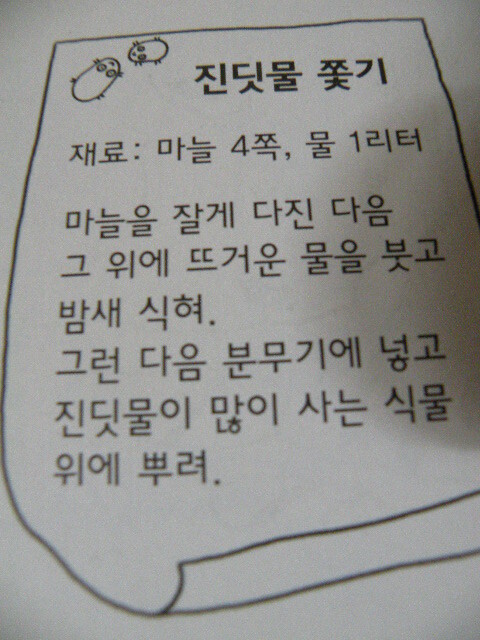 진딧물 쫓기
재료: 마늘 4쪽, 물 1리터
마늘을 잘게 다진 다음
그 위에 뜨거운 물을 붓고
밤새 식혀.
그런 다음 분무기에 넣고
진딧물이 많이 사는 식물
위에 뿌려.